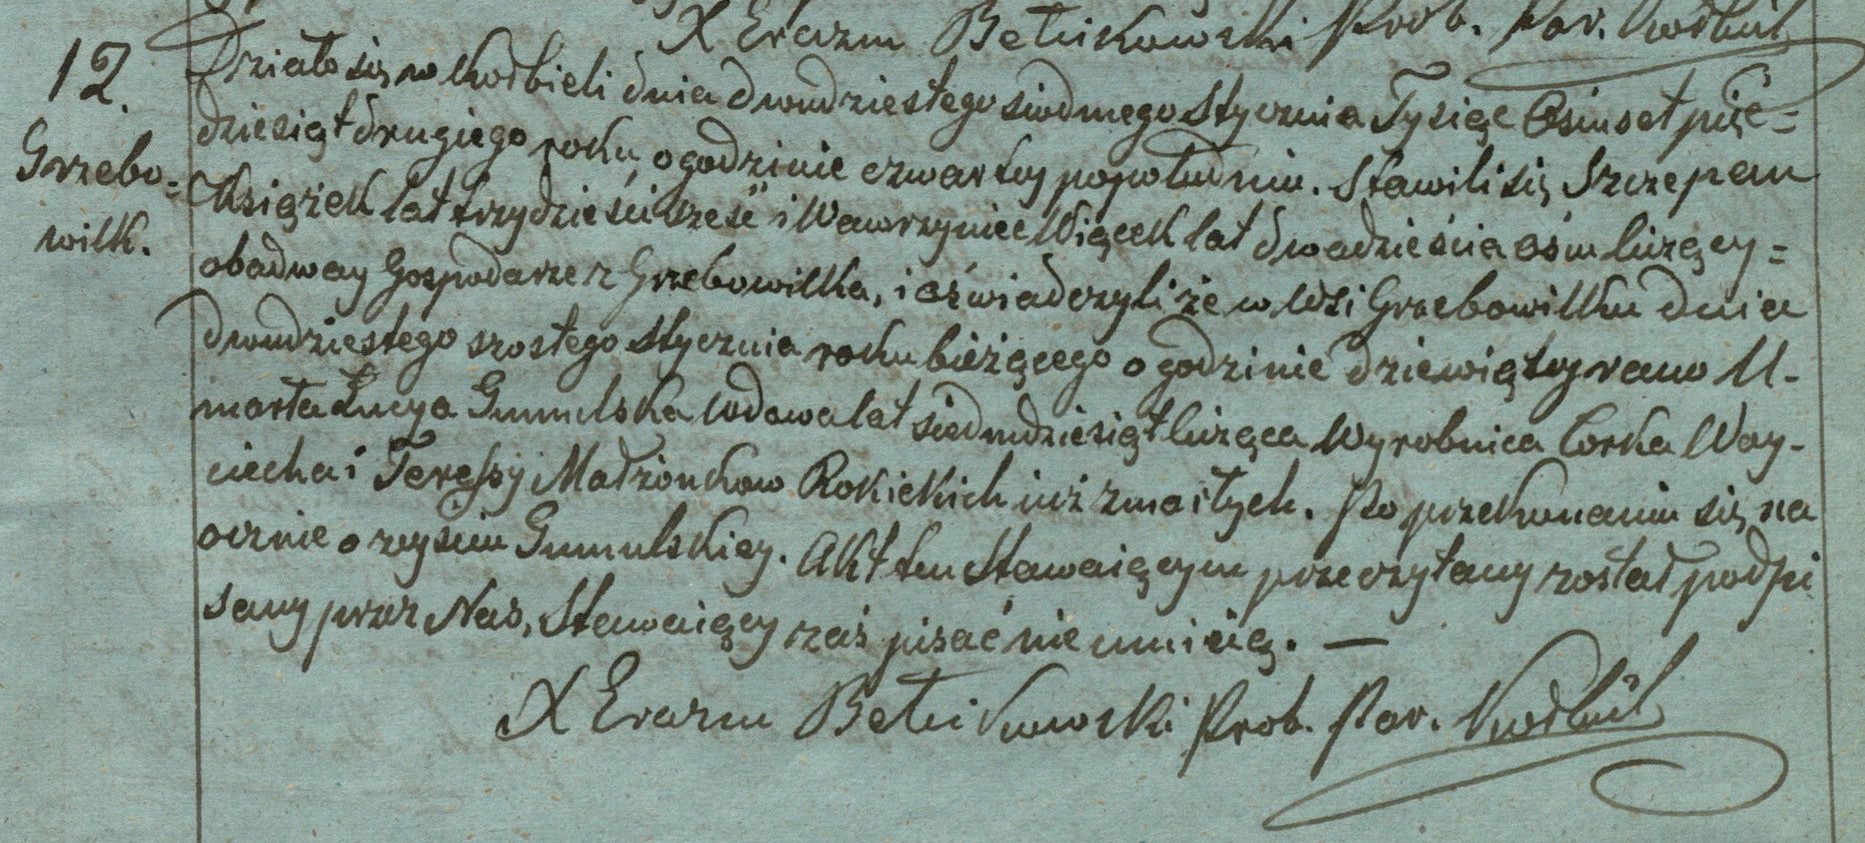 X Erazm Betlikowski Prob. Par. Kołbiel
12.
Grzebo=
wilk.
Działo się w Kołbieli dnia dwudziestego siodmego Stycznia Tysiąc Osmset pięć=
dziesiąt drugiego roku, o godzinie czwartey popołudniu. Stawili się Szczepan
Książek lat trzydzieści sześć i Wawrzyniec Więcek lat dwadzieścia ośm liczący=
obadway Gospodarze z Grzebowilka, i oświadczyli że w Wsi Grzebowilku dnia
dwudziestego szostego Stycznia roku bieżącego o godzinie dziewiątey rano U-
marła Łucya Gumulska Wdowa lat siedmdziesiąt licząca Wyrobnica Corka Woy-
ciecha i Teressy Małżonkow Rokickich iuż zmarłych. Po przekonaniu się na
ocznie o zeyściu Gumulskiey. Akt ten Stawaiącym przeczytany został podpi
sany przez Nas, Stawaiący zaś pisać nie umieią. —
X Erazm Betlikowski Prob. Par. Kołbiel